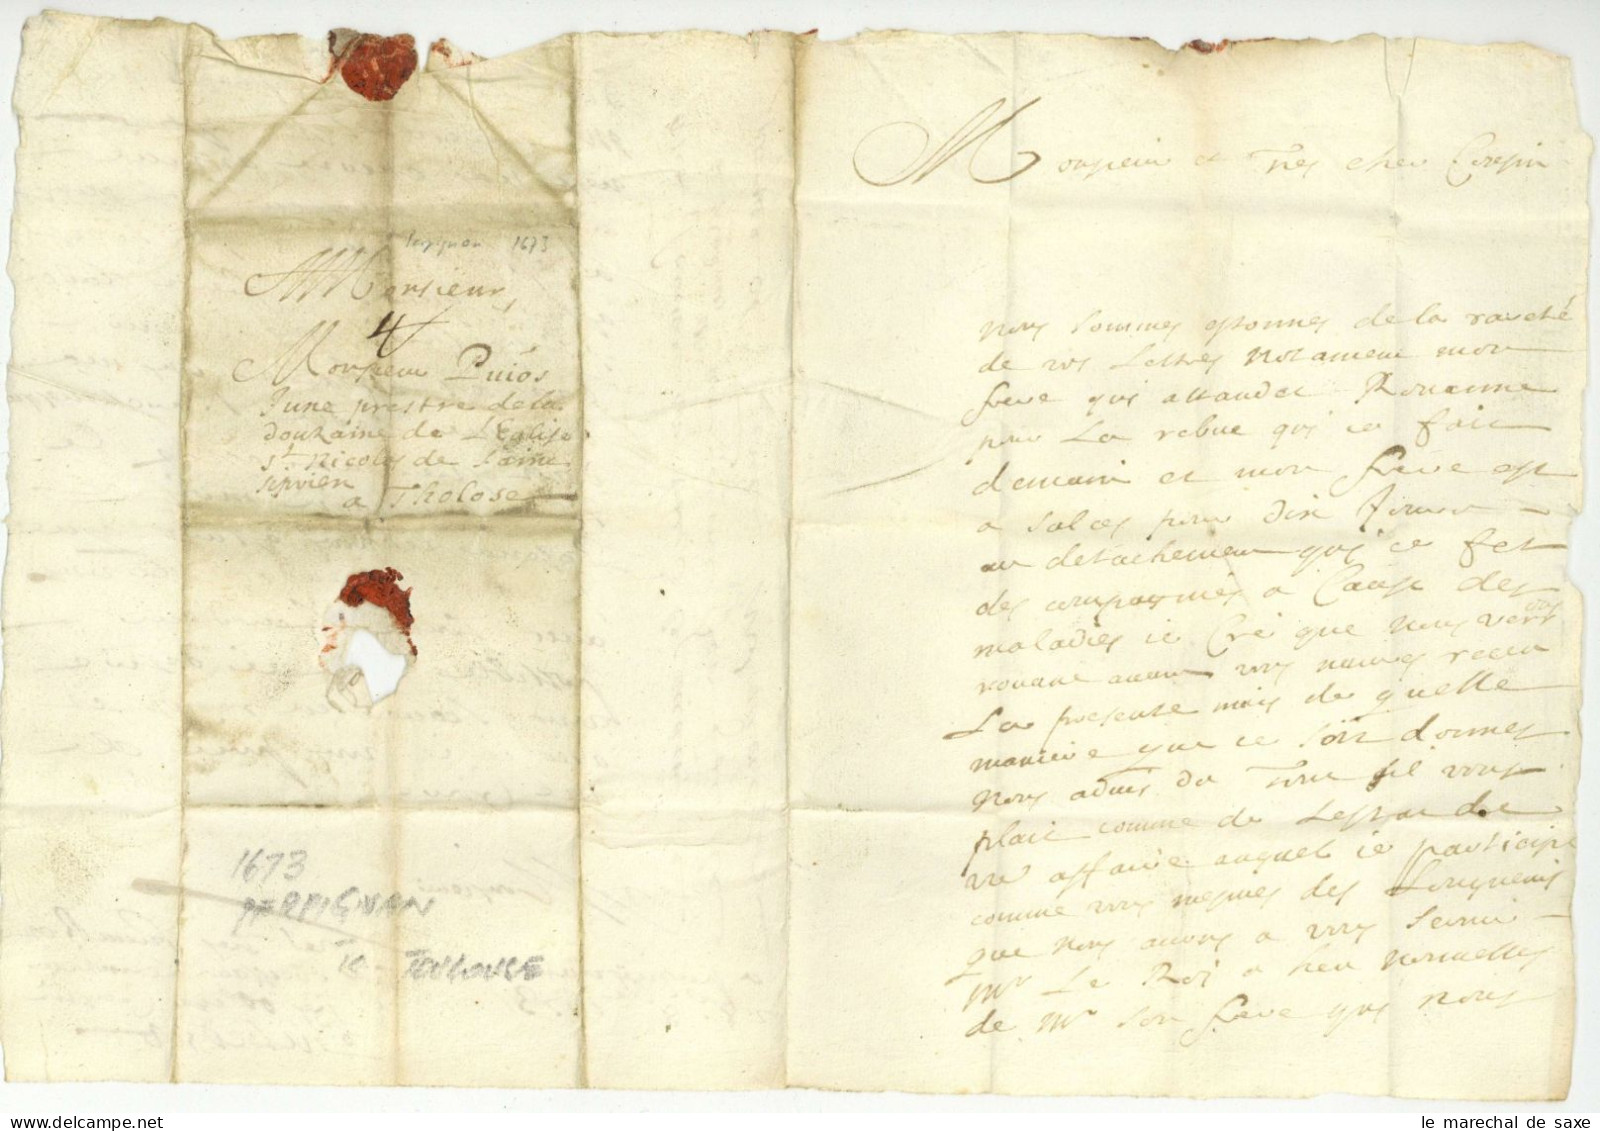 Perpignan 1673
Monsieur
4
Monsieur Puiós
June prestre de la
douzaine de L'Eglise
st Nicolas de Saint
siprien
a Tholose
1673
PERPIGNAN
to TOULOUSE
Monsieur et Tres cher Cousin
nous sommes estonnes de la rareté
de vos Lettres notament mon
frere qui attandet Rouanne
pour La rebue qui ce fait
demain et mon frere est
a salces pour dix Jours
un detachement qui ce fet
des compagnies a Cause des
maladies ie Cré que nous vous verr
rons avant vous naures receu
La presente mais de quelle
maniere que ce soit donnes
nous advis du Tout sil vous
plait comme de Lestat de
vre affaire auquel ie participe
comme vous mesmes des
que nous avons a vous servir
Mr Le Roi a heu nouvelles
de Mr son frere qui nous
le marechal de saxe